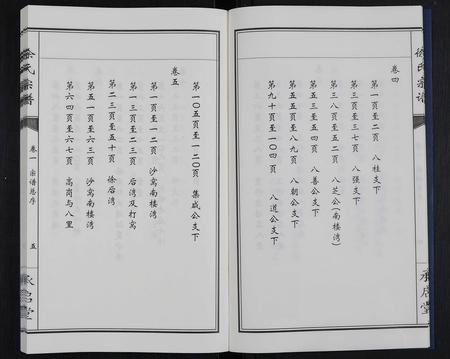 徐氏宗谱
卷四
第一页至二页 八柱支下
第三页至三七页 八强支下
第三八页至五二页 八芝公(南楼湾)
第五三页至五四页 八善公支下
第五五页至八九页 八朝公支下
第九十页至一〇四页 八道公支下
承启堂
第一〇五页至一二〇页 集成公支下
卷五
第一页至一二页 沙窝南楼湾
第一三页至二三页 后湾及打窝
第二三页至五十页 徐后湾
第五一页至六三页 沙窝南楼湾
第六四页至六七页 高岗与八里
徐氏宗谱
卷一 宗谱总序
五
承启堂